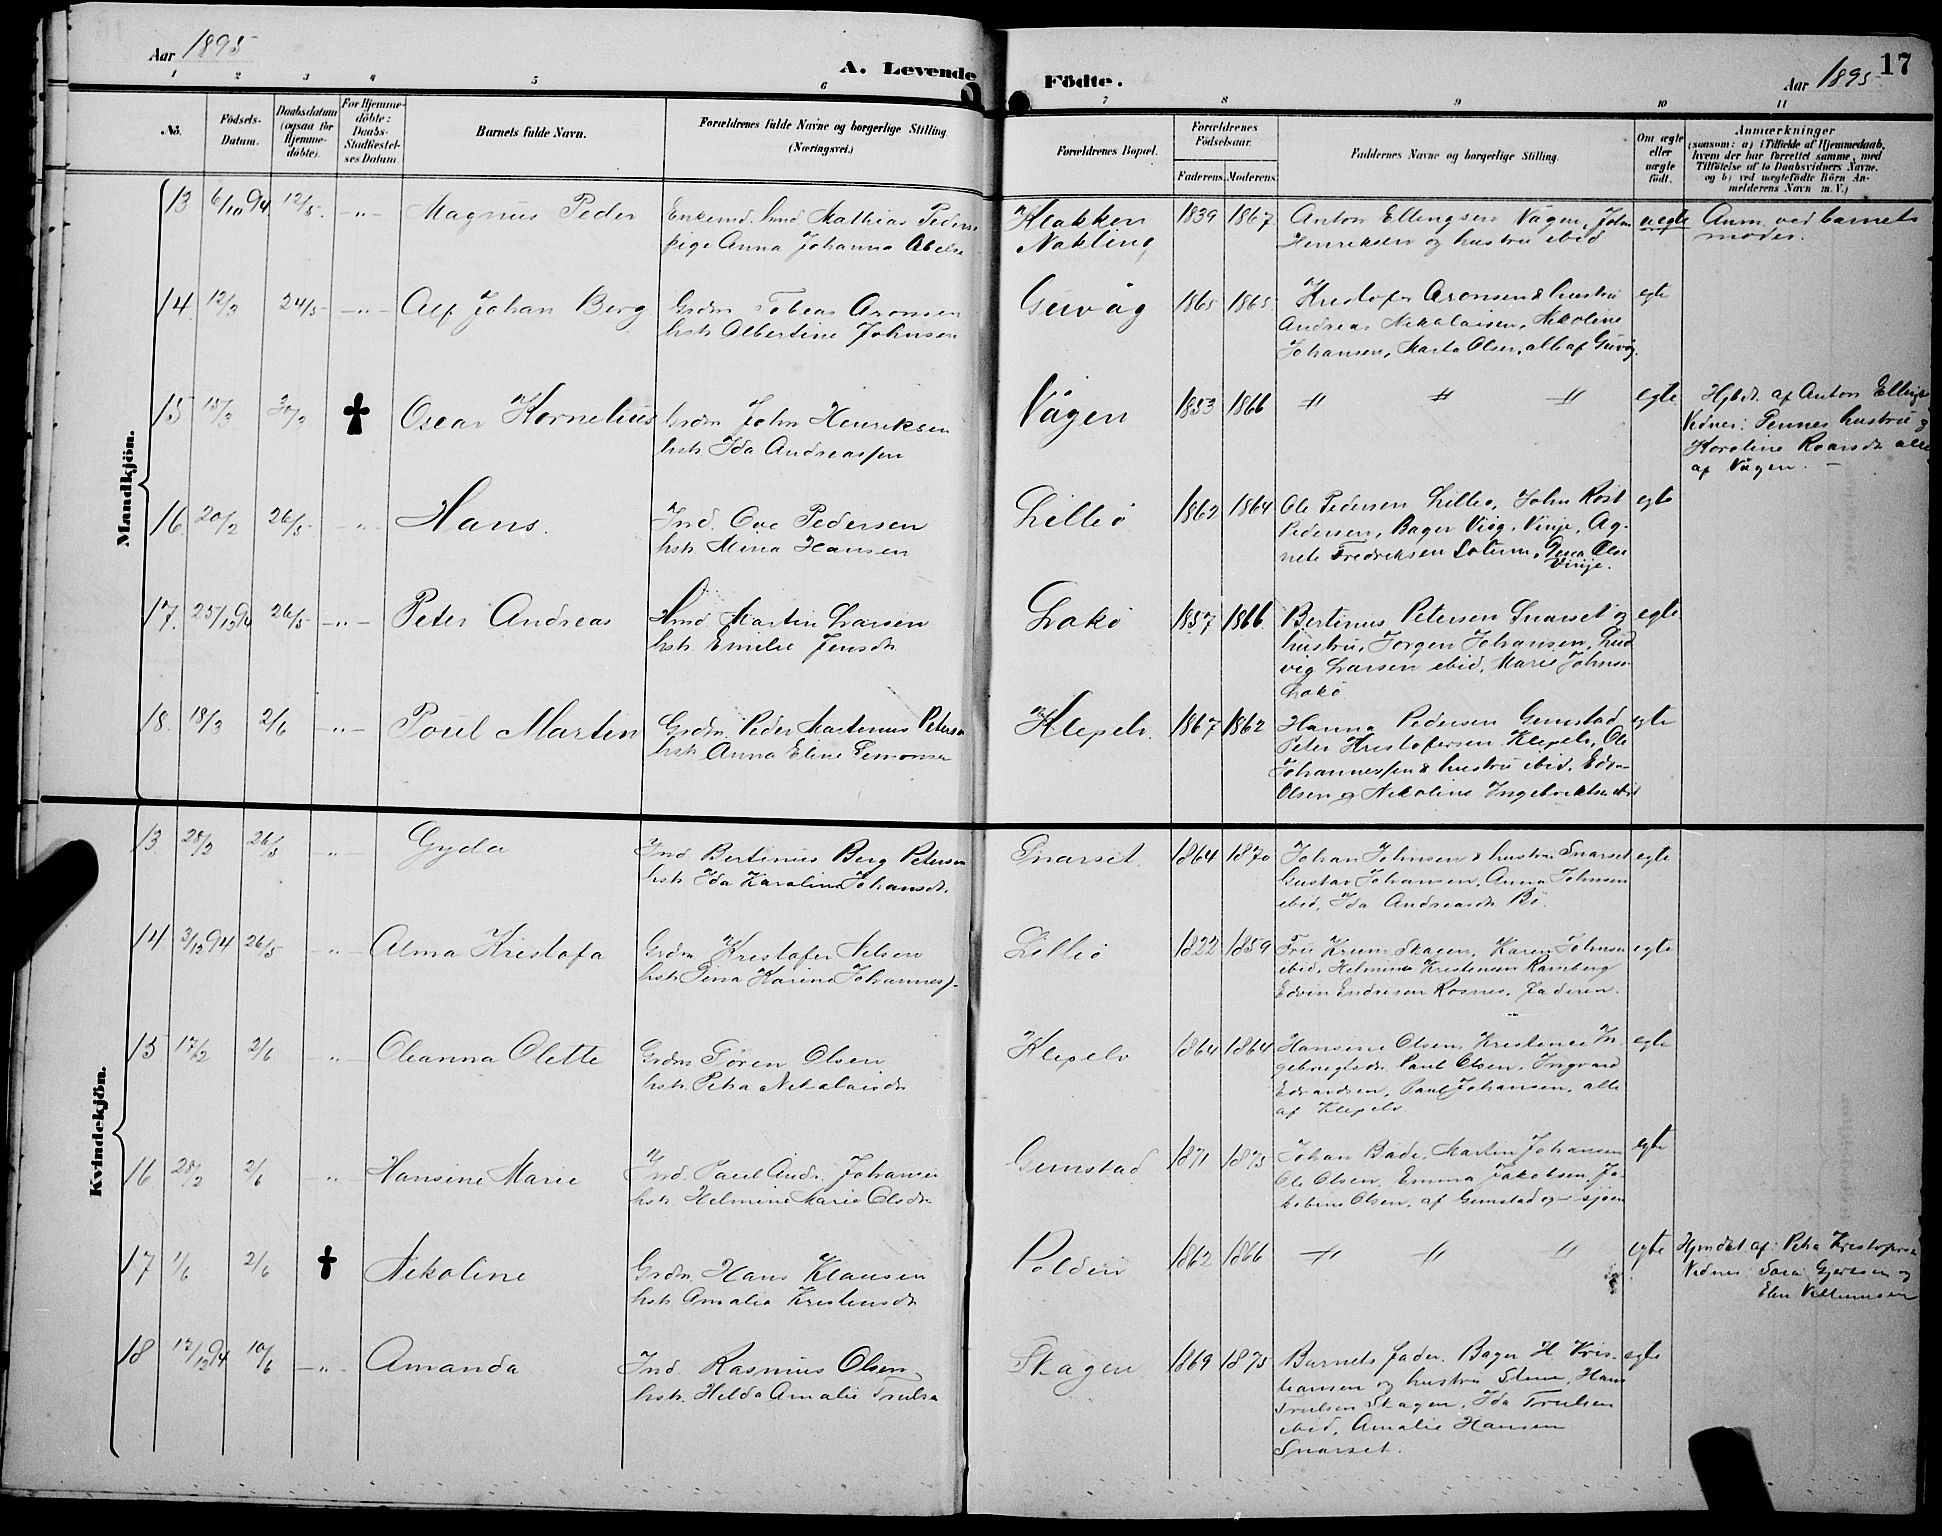 Aar 1895
A. Levende Födte.
Aar 1895
17
1 2 3 4 5 6 7 8 9 10 11
No.
Födsels-
Datum.
Daabsdatum
(ogsaa for
Hjemme-
döbte).
For Hjemme-
döbte:
Daabs-
Stadfæstel-
ses Datum.
Barnets fulde Navn.
Forældrenes fulde Navne og borgerlige Stilling.
(Næringsvei.)
Forældrenes Bopæl.
Forældrenes
Födselsaar.
Faderens. Moderens.
Faddernes Navne og borgerlige Stilling.
Om ægte
eller
uægte
födt.
Anmærkninger
(saasom: a) i Tilfælde af Hjemmedaab,
hvem der har forrettet samme, med
Tilföielse af to Daabsvidners Navne,
og b) ved uægtefödte Börn An-
melderens Navn m. V.)
Mandkjön.
13 6/10 94 12/5 -„- Magnus Peder
Enkemd. Inds Mathias Peders
pige Anna Johanna Abels
Klakken
Nakling
1839 1867
Anton Ellingsen Vågen, John
Henriksen og hustru ibid
uegte
Anm. ved barnets
moder.
14 12/3 24/5 -„- Alf Johan Berg
Grdm Tobias Aronsen
hstr Albertine Johnsen
Guvåg
1865 1865
Kristofer Aronsen & hustru
Andreas Nikolaisen, Nikoline
Johansen, Marta Olsen, alle af Guvåg
egte
15 15/3 30/3 ✝ Oscar Kornelius
Grdm John Henriksen
hstr. Ida Andreassen
Vågen
1853 1866
-„- -„- -„-
egte
Hjdt. af Anton Ellings
Vidner: Pennes hustru &
Karoline Roarsdr alle
af Vågen. -
16 20/2 26/5 -„- Hans.
Ind. Ove Pedersen
hstr. Mina Hansen
Lillö
1862 1864
Ole Pedersen Lillö, John Röst
Pedersen, Bager Visg. Vinje, Ag-
nete Fredriksen Sotum, Olse
Vinje.
egte
17. 25/12 94 26/5 -„- Peter Andreas
Hmd. Martin Larsen
hstr. Emilie Jensdr
Lokö
1857 1866
Bertinus Petersen Snarset og
hustru, Jorgen Johansen, Lud
vig Larsen ibid, Marie Johns
Lokö
egte
18. 18/3 2/6 -„- Poul Martin
Grdm. Peder Martinus Peters
hstr. Anna Eline Simonse
Klepelv.
1867 1862
Hanna Pedersen Gimstad
Peter Kristofersen Klepelv, Ole
Johannessen & hustru ibid, Edv.
Olsen & Nikoline Ingebriktsn ibid
egte
Kvindekjön.
13 28/2 26/5 „ Gyda
Ind Bertinius Berg Petersen
hstr Ida Karoline Johansdr.
Snarset
1864 1870
Johan Johnsen & hustru Snarset
Gustav Johansen, Anna Johnsen
ibid, Ida Andreasdr Bö.
egte
14 3/12 94 26/5 -„- Alma Kristofa
Grdm Kristofer Nilsen
hstr. Pina Karina Johanness.
Lillö
1822 1859
Fru Krum Skagen, Karen Johnsen
ibid, Helmine Kristensen Ramberg
Edvin Endresen Rosnes. Faderen.
egte
15 17/2 2/6 „ Oleanna Olette
Grdm Sören Olsen
hstr. Petra Nikolaisdr
Klepelv
1864 1864
Hansine Olsen, Kristense In-
gebrigtsdr. Paul Olsen, Ingvard
Edvardsen, Paul Johansen, alle
af Klepelv
egte
16 28/3 2/6 „ Hansine Marie
Ind. Paul Andr. Johansen
hstr. Helmine Marie Olsdr.
Gimstad
1871 1875
Johan Bade, Martin Johansen
Ole Olsen, Emma Jakobsen, Ja-
kobine Olsen, af Gimstad og - sjøen
egte
17 1/6 2/6 ✝ Nikoline
Grdm Hans Klausen
hstr. Amalia Kristensdr
Polden
1862 1866
-„- -„- -„-
egte
Hjmdöt af: Petra Kristofersen
Vidner: Sara Gjertsen og
Elen Villumsen
18 12/12 94 10/6 -„- Amanda
Ind. Rasmus Olsen
hstr. Hilda Amalie Trulsa
Skagen
1869 1875
Barnets fader, Bager H Kris-
tiansen og hustru Stene, Hans
Trulsen Skagen, Ida Trulsen
ibid, Amalie Hansen
Snarset.
egte